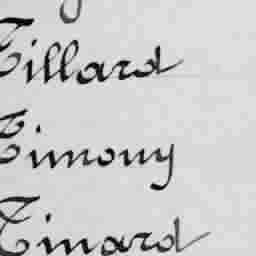 Tillard
Timony
Tinard